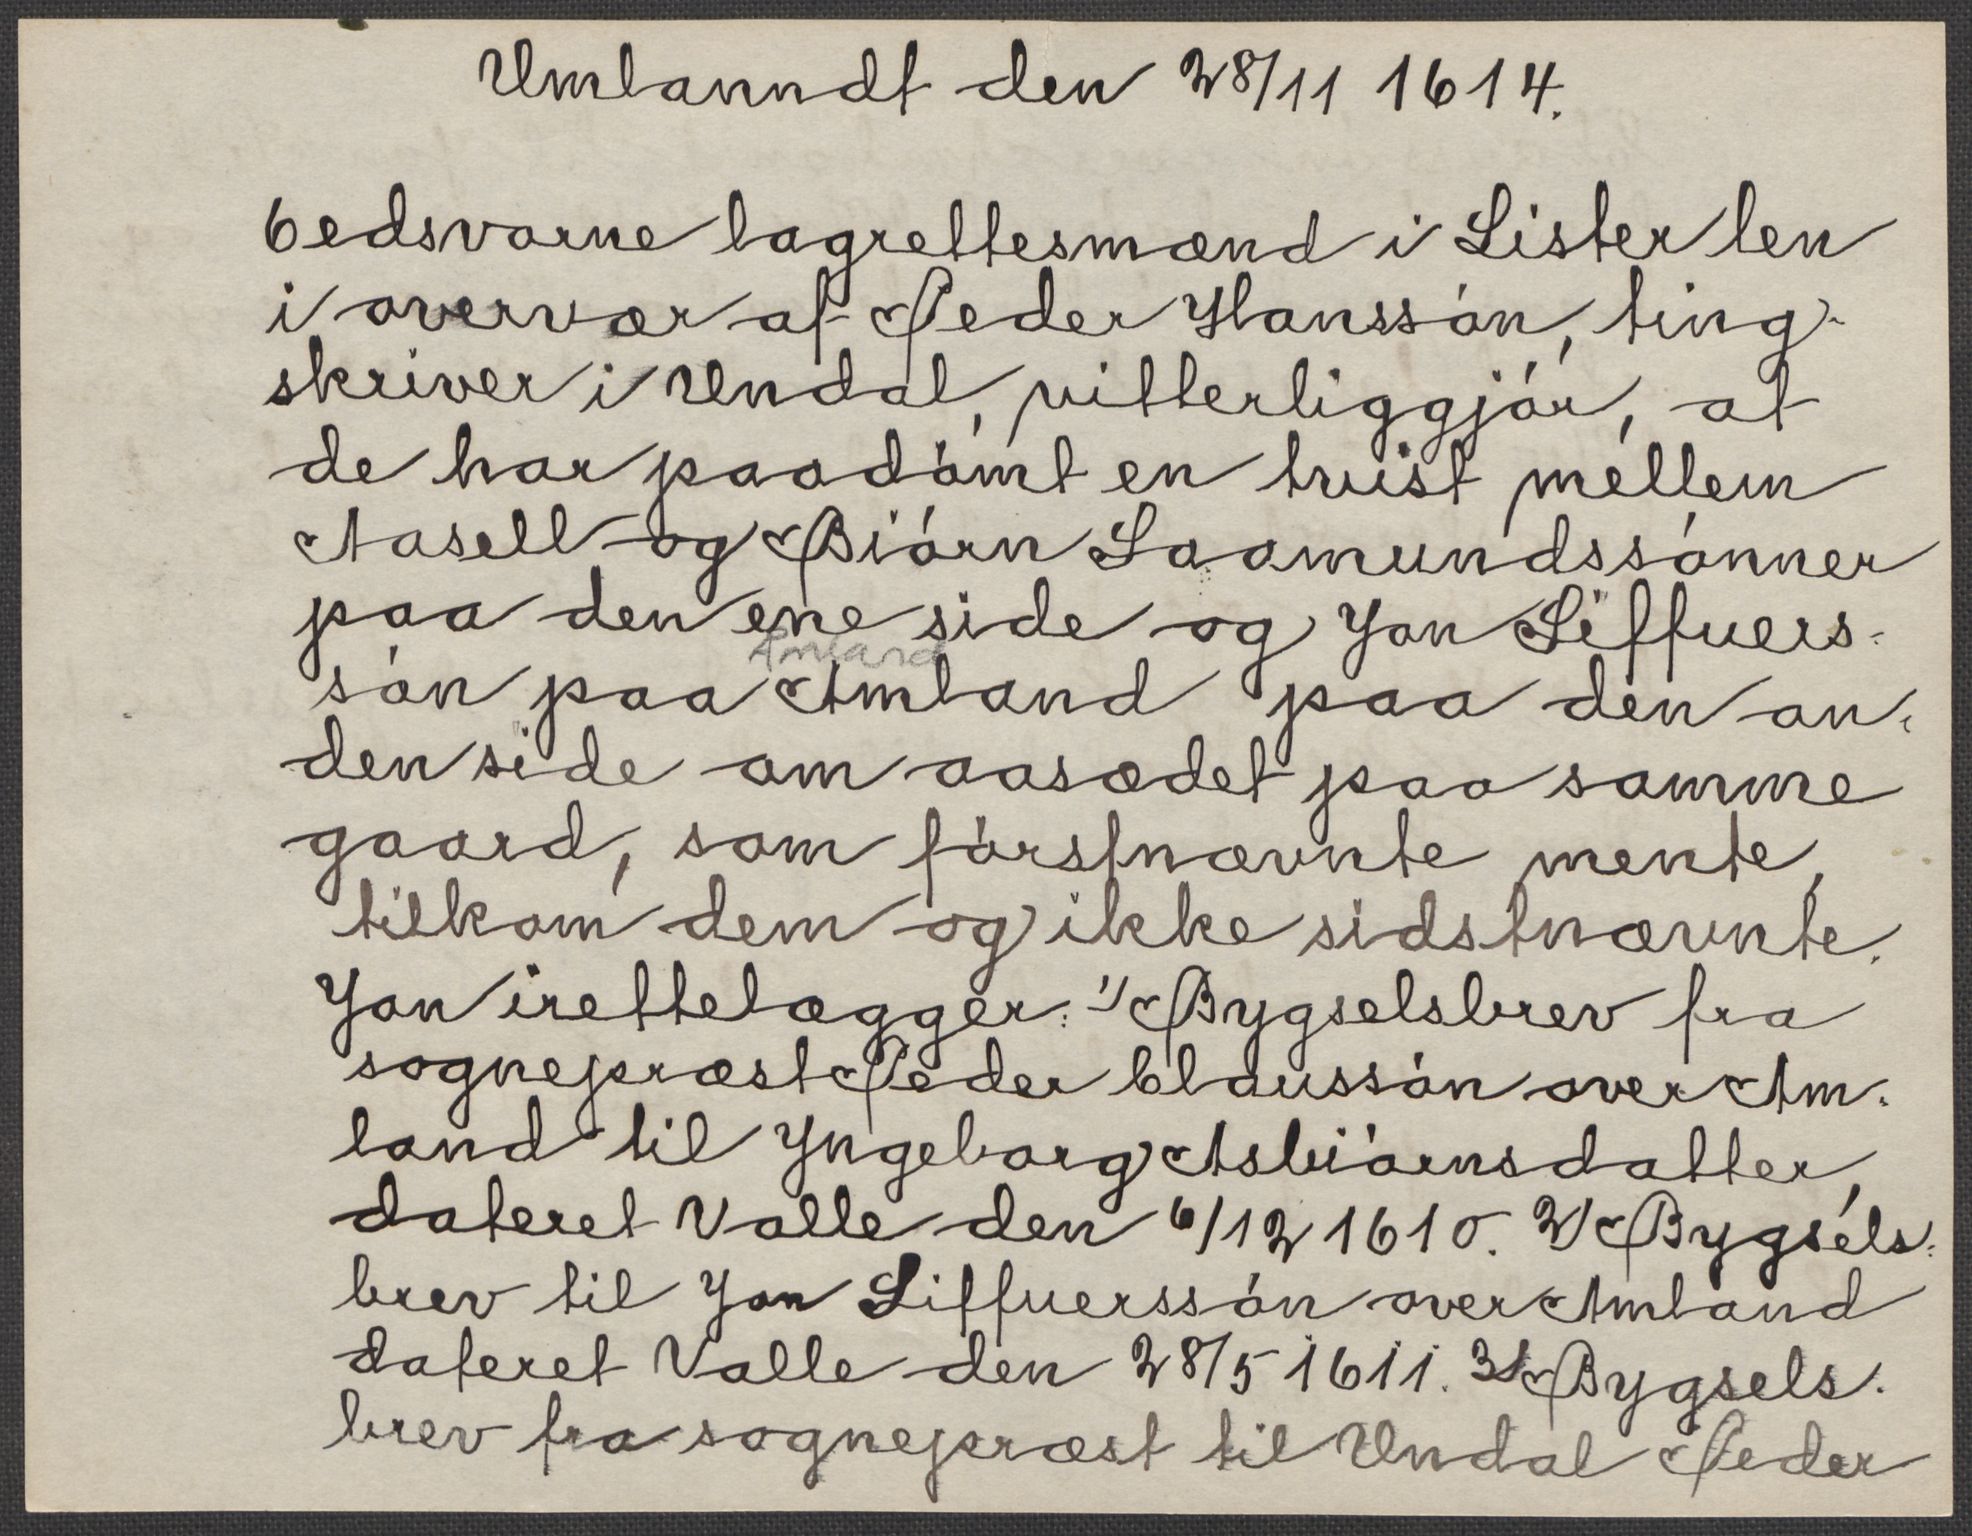 Umlanndt den 28/11 1614.
6 edsvorne lagrettesmænd i Lister len
i overvær af Peder Hanssón, ting-
skriver i Undal, vitterliggjór, at
de har paadómt en tvist mellem
Aasell og Biórn Saamundssónner
paa den ene side og Jon Siffuers-
Åmland
són paa Amland paa den an-
den side om aasædet paa samme
gaard, som fórstnævnte mente,
tilkom dem og ikke sidstnævnte.
Jon irettelægger: 1/ Bygselsbrev fra
sogneprest Peder Claussón over Am-
land til Yngeborg Asbiórnsdatter,
dateret Valle den 6/12 1610. 2/ Bygsels-
brev til Jon Siffuerssón over Amland
dateret Valle den 28/5 1611. 3/ Bygsels-
brev fra sognepræst til Undal Peder